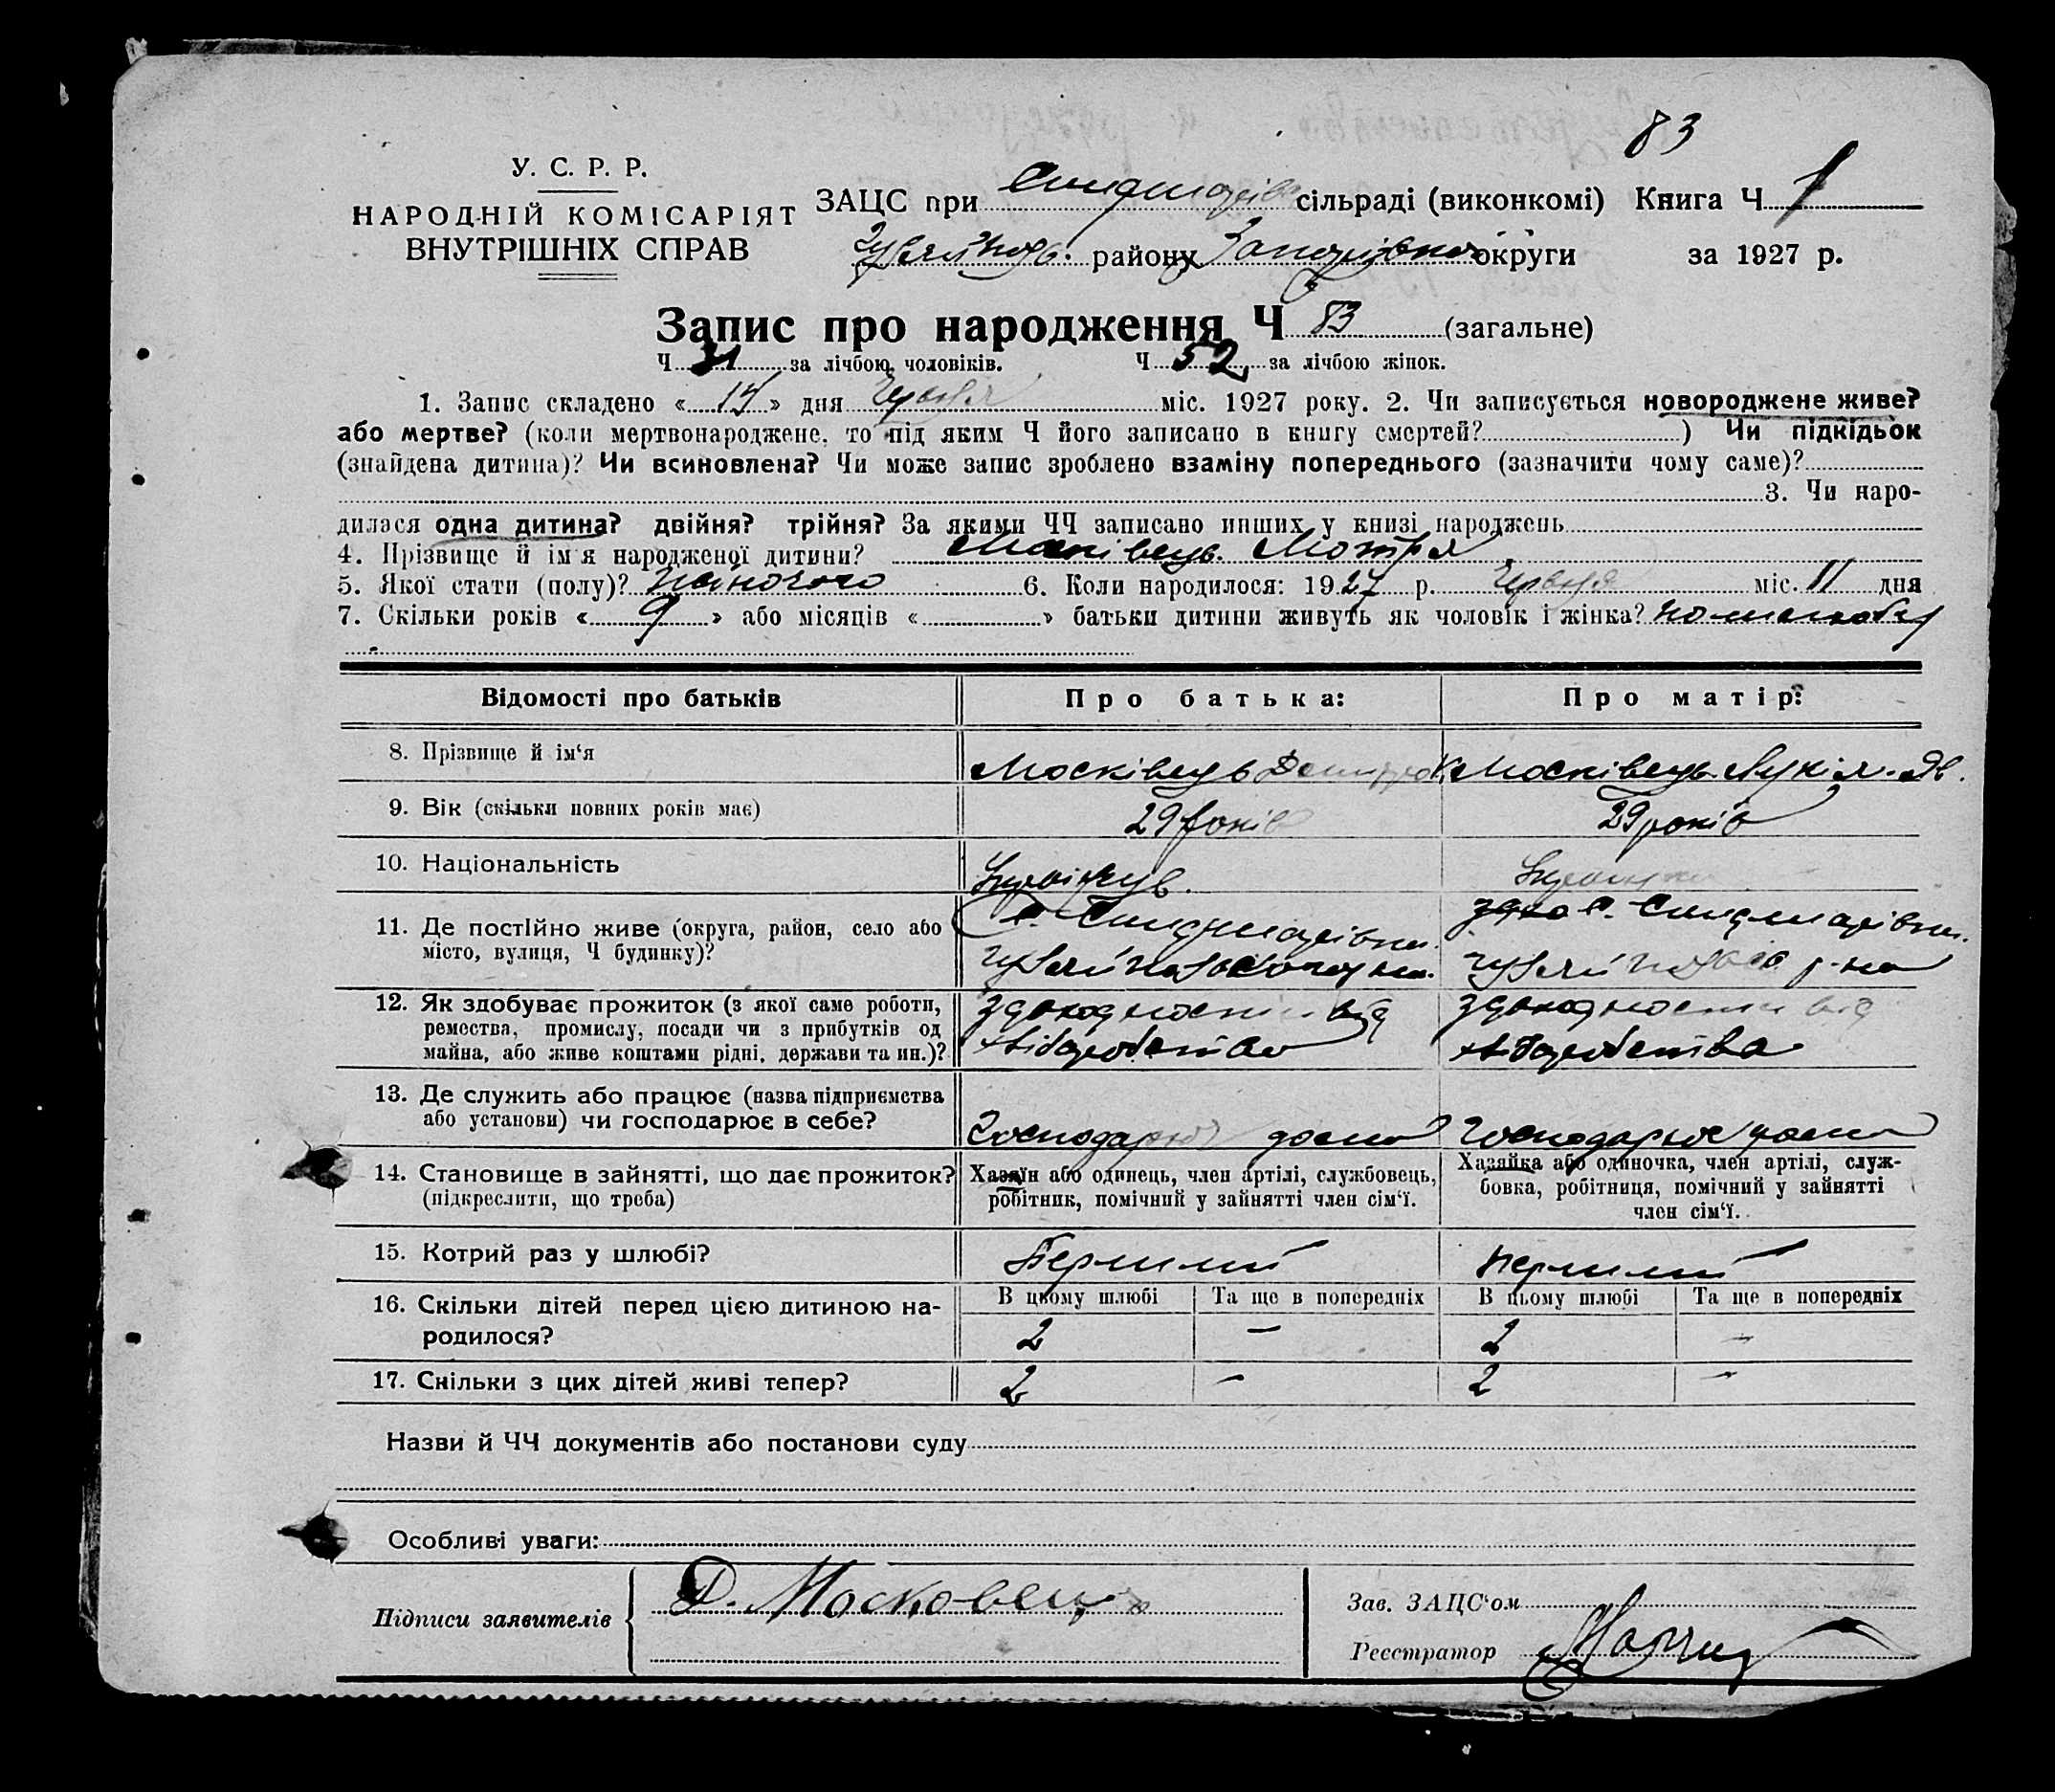 83
У. С. Р. Р.
НАРОДНІЙ КОМІСАРІЯТ
ВНУТРІШНІХ СПРАВ
ЗАЦС при сільраді (виконкомі) Книга Ч 1
району округи за 1927 р.
Запис про народження Ч 83 (загальне)
Ч 31 за лічбою чоловіків. Ч 52 за лічбою жінок.
1. Запис складено « » дня Червня міс. 1927 року. 2. Чи записується новороджене живе?
або мертве? (коли мертвонароджене, то під яким Ч його записано в книгу смертей? ) Чи підкідьок
(знайдена дитина)? Чи всиновлена? Чи може запис зроблено взаміну попереднього (зазначити чому саме)?
3. Чи наро-
дилася одна дитина? двійня? трійня? За якими ЧЧ записано инших у книзі народжень
4. Прізвище й ім'я народженої дитини? Мотря
5. Якої стати (полу)? жіночого 6. Коли народилося: 1927 р. Червня міс. 11 дня
7. Скільки років « 9 » або місяців « » батьки дитини живуть як чоловік і жінка?
Відомості про батьків Про батька: Про матір:
8. Прізвище й ім'я Московець Московець Лукія Як.
9. Вік (скільки повних років має) 29 років 29 років
10. Національність
11. Де постійно живе (округа, район, село або
місто, вулиця, Ч будинку)?
12. Як здобуває прожиток (з якої саме роботи, здоходности від здоходности від
ремества, промислу, посади чи з прибутків од
майна, або живе коштами рідні, держави та ин.)? хліборобства хліборобства
13. Де служить або працює (назва підприємства
або установи) чи господарює в себе? Господарює дома Господарює дома
14. Становище в зайнятті, що дає прожиток? Хазяїн або одинець, член артілі, службовець, Хазяйка або одиночка, член артілі, служ-
(підкреслити, що треба) робітник, помічний у зайнятті член сім'ї. бовка, робітниця, помічний у зайнятті
член сім'ї.
15. Котрий раз у шлюбі? Перший перший
16. Скільки дітей перед цією дитиною на- В цьому шлюбі Та ще в попередніх В цьому шлюбі Та ще в попередніх
родилося? 2 – 2 –
17. Скільки з цих дітей живі тепер? 2 – 2 –
Назви й ЧЧ документів або постанови суду
Особливі уваги:
Підписи заявителів Д. Московец
Зав. ЗАЦС'ом
Реєстратор